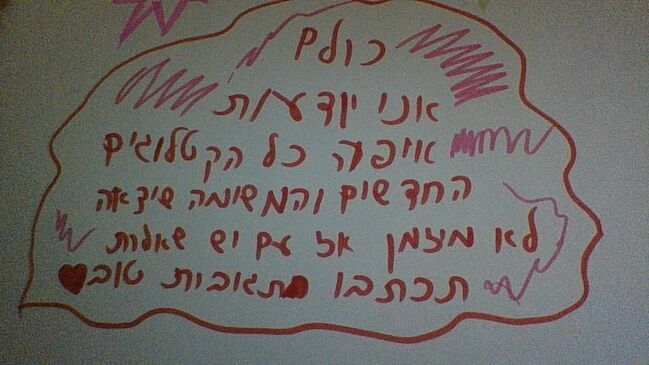 כולם
אני יודעות
איפה כל הקטלוגים
החדשים והמשימה שיצאה
לא מזמן אז עם יש שאלות
תכתבו ♥תגובות טוב♥